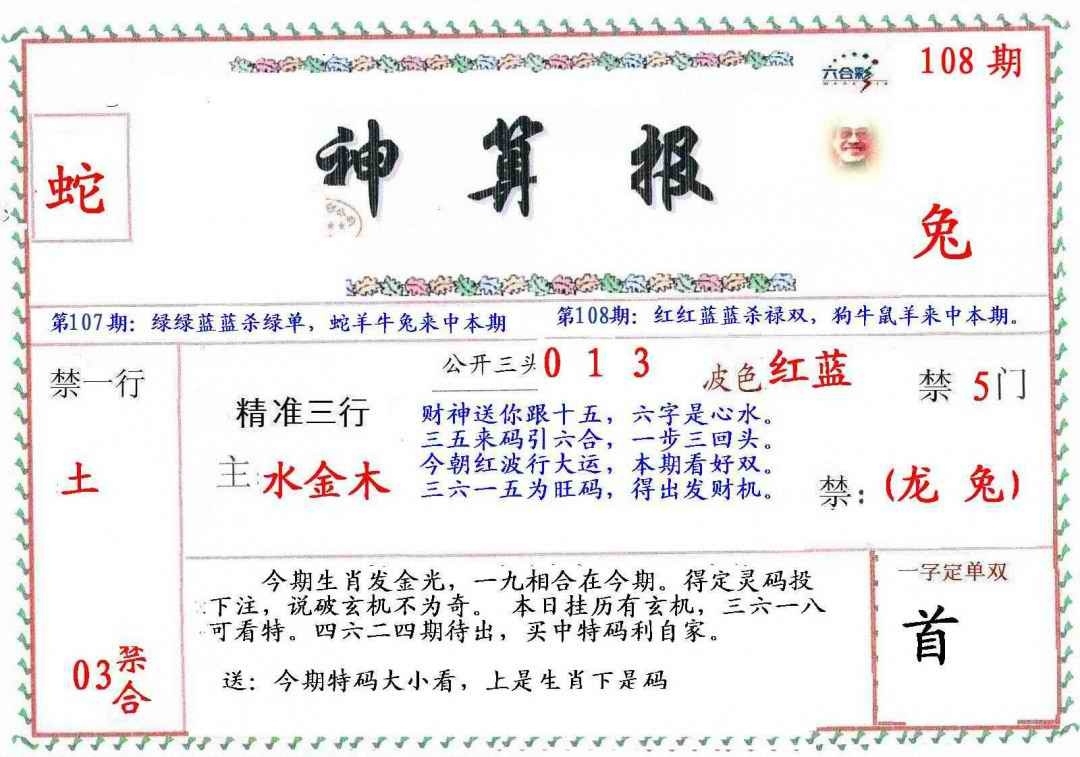 六合彩
108 期
神算报
蛇
兔
第107期：绿绿蓝蓝杀绿单，蛇羊牛兔来中本期
第108期：红红蓝蓝杀禄双，狗牛鼠羊来中本期。
禁一行
土
03禁合
公开三头 0 1 3
波色 红蓝
禁 5门
精准三行
主：水金木
财神送你跟十五，六字是心水。
三五来码引六合，一步三回头。
今朝红波行大运，本期看好双。
三六一五为旺码，得出发财机。
禁：(龙 兔)
今期生肖发金光，一九相合在今期。得定灵码投
下注，说破玄机不为奇。 本日挂历有玄机，三六一八
可看特。四六二四期待出，买中特码利自家。
送：今期特码大小看，上是生肖下是码
一字定单双
首